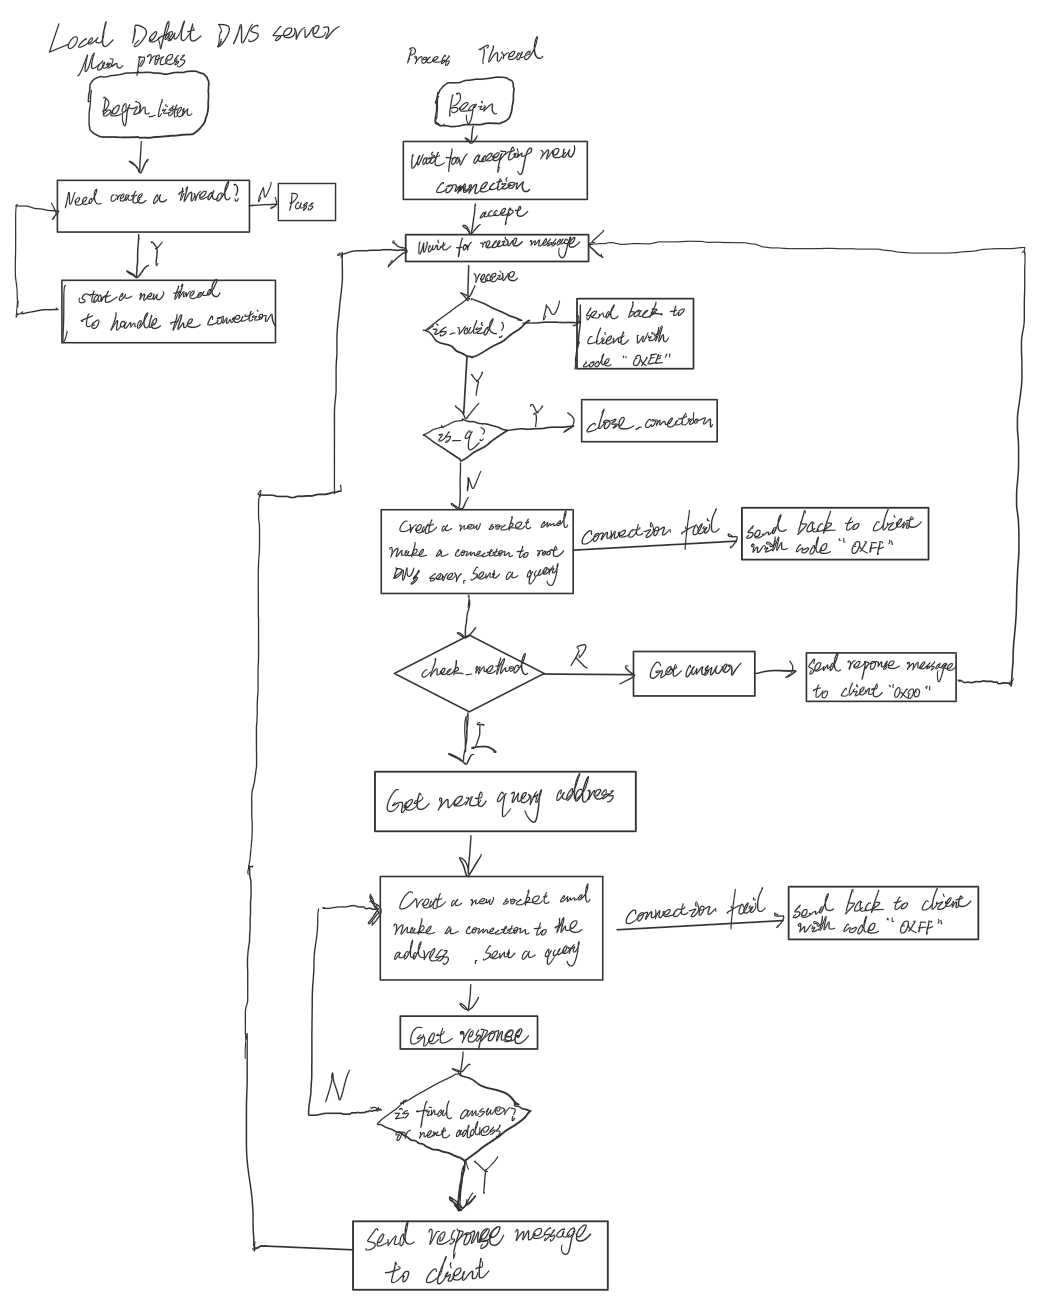 Local Default DNS server
Main process
Begin_listen
Need create a thread?
N
Pass
Y
start a new thread
to handle the conection
Process Thread
Begin
Wait for accepting new
connection
accept
Wait for receive message
receive
is_valid?
N
send back to
client with
code "0XEE"
Y
is_q?
Y
close_conection
N
Creat a new socket and
make a conection to root
DNS sever, Sent a query
Connection fail
send back to client
with code "0XFF"
check_method
R
Get answer
send reponse message
to client "0x00"
I
Get next query address
Creat a new socket and
make a conection to the
address , Sent a query
Connection fail
send back to client
with code "0XFF"
Get response
N
is final answer?
or next address
Y
Send response message
to client